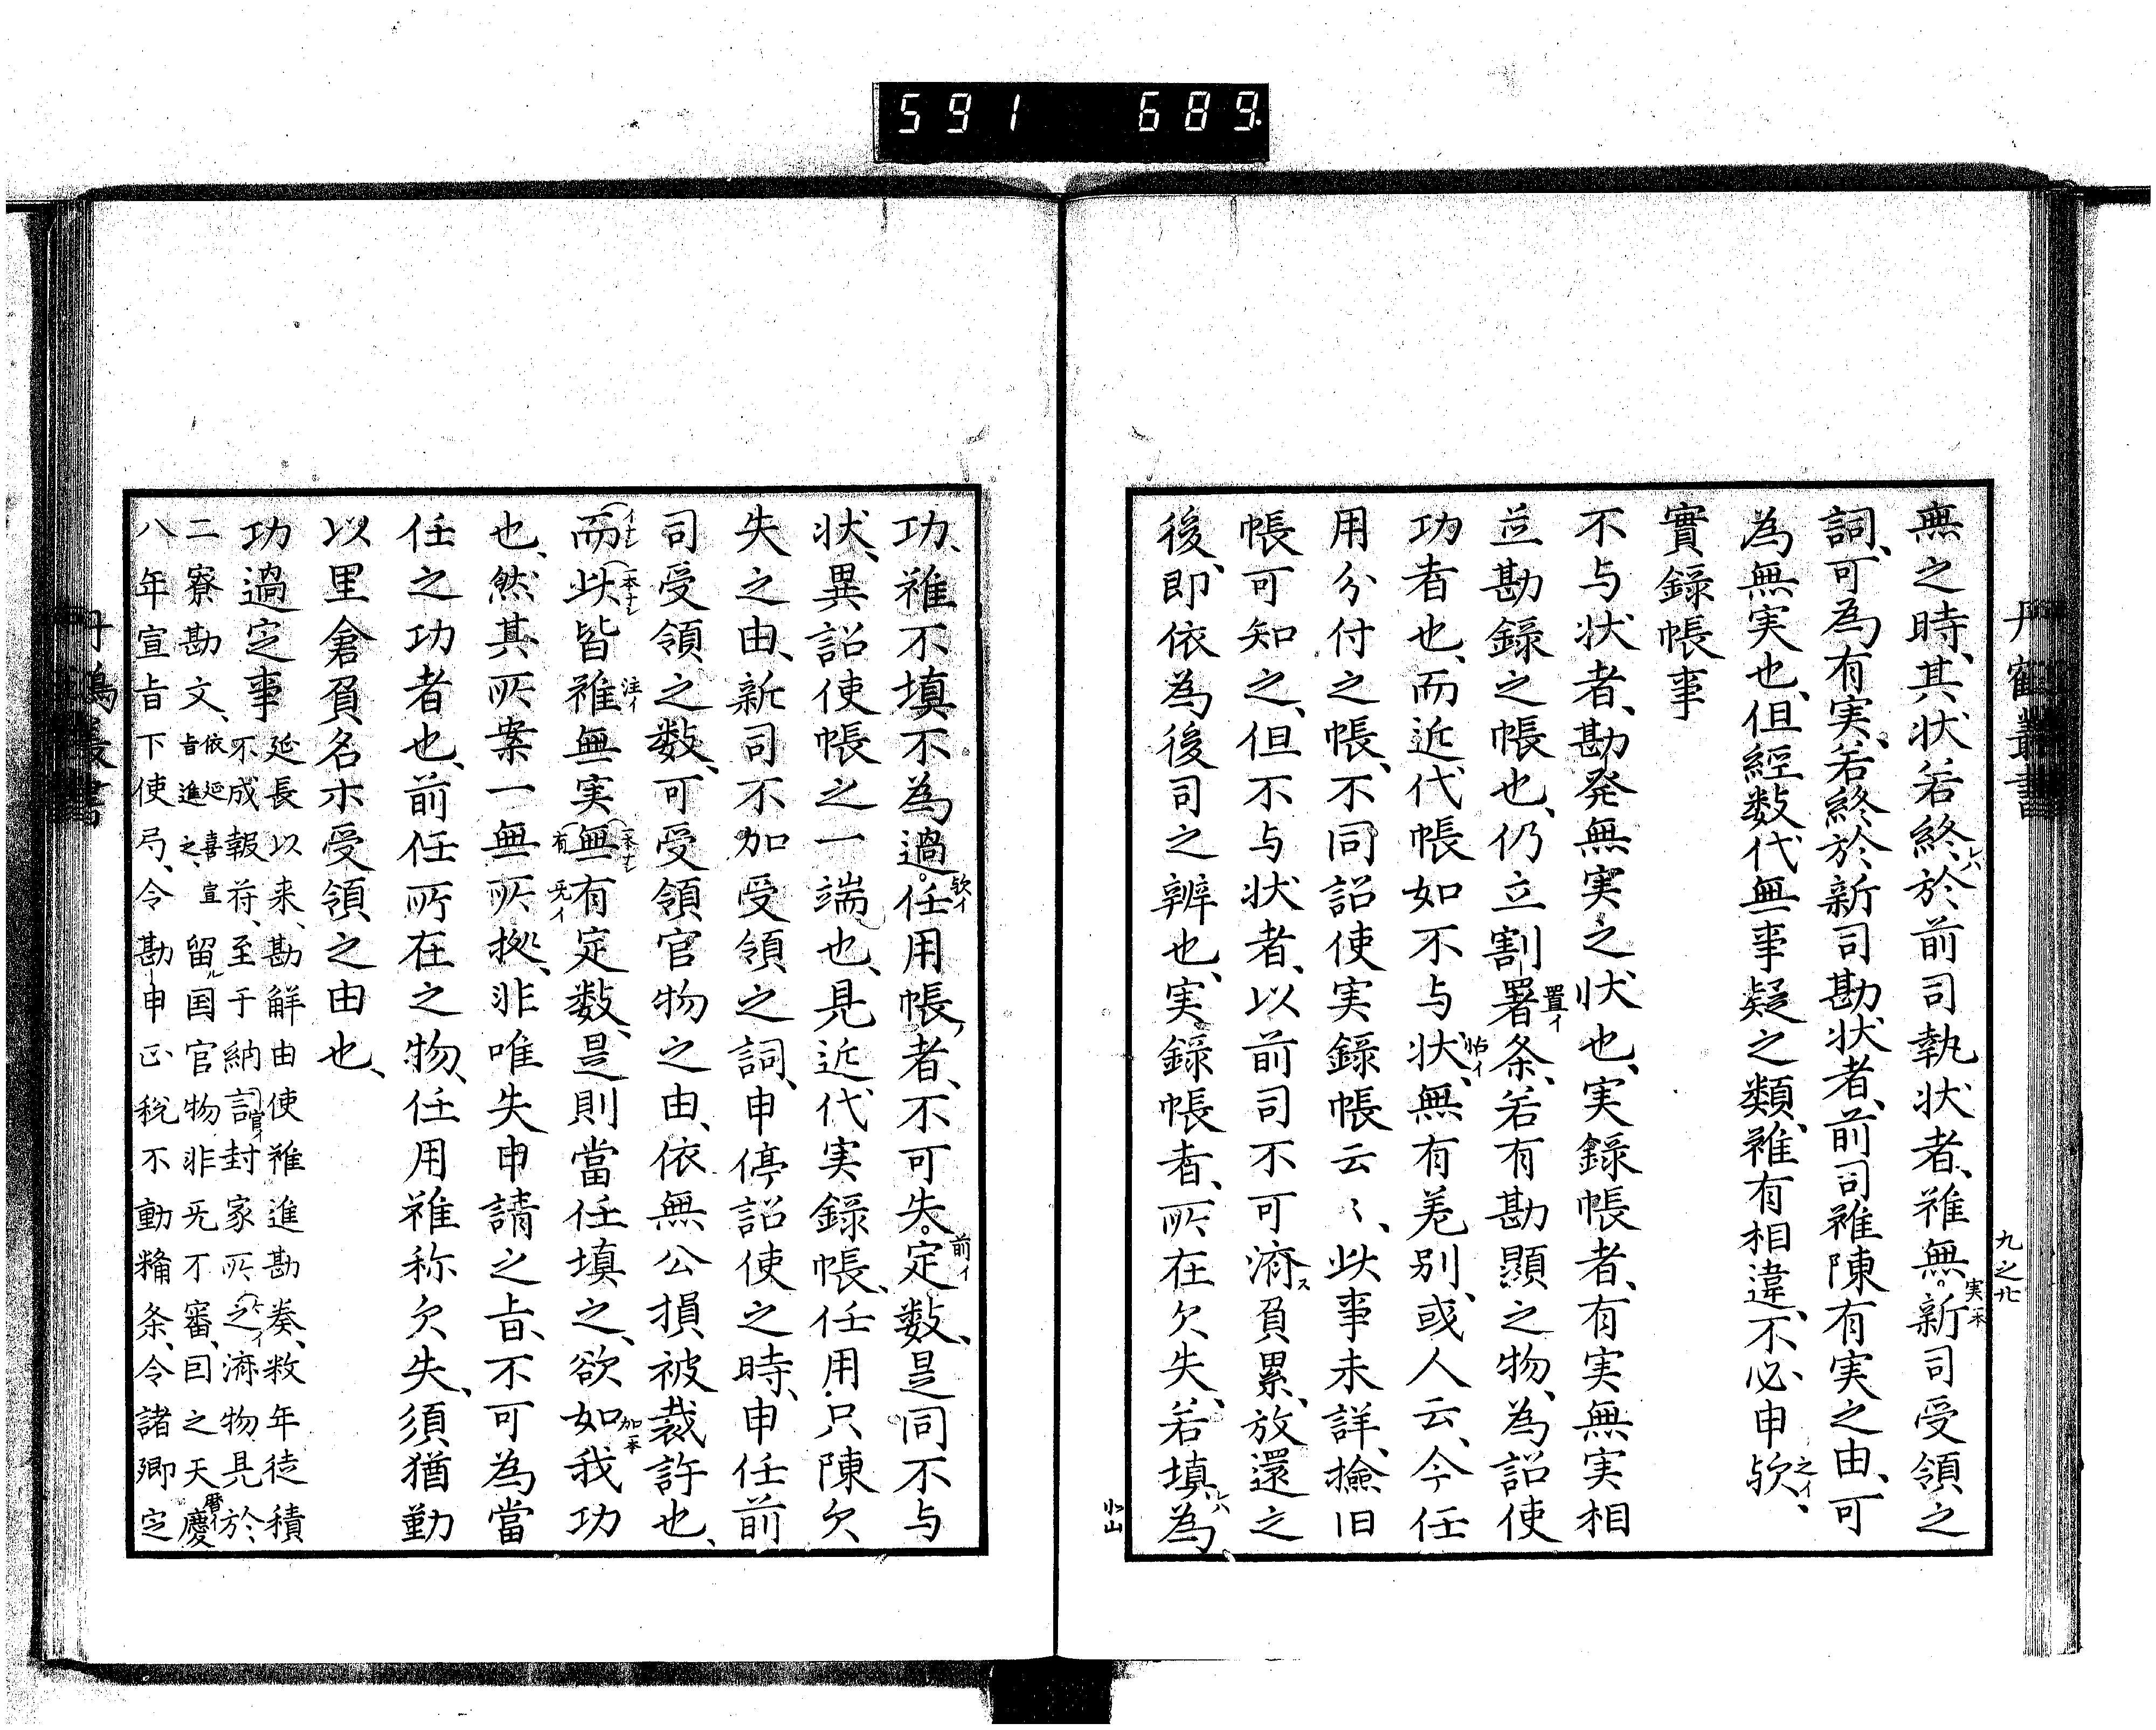 591 689
丹鶴叢書
九之廿
無之時、其状若終於前司執状者、雖無新司受領之
詞、可為有実、若終於新司勘状者、前司雖陳有実之由、可
為無実也、但經数代無事疑之類、雖有相違、不必申欤、
實録帳事
不与状者、勘発無実之状也、実録帳者、有実無実相
並勘録之帳也、仍立割署条、若有勘顕之物、為詔使
功者也、而近代帳如不与状、無有差別、或人云、今任
用分付之帳、不同詔使実録帳云〻、此事未詳、撿旧
帳可知之、但不与状者、以前司不可済負累、放還之
後、即依為後司之辨也、実録帳者、所在欠失、若填為
北山
功、雖不填不為過、任用帳者、不可失定数、是同不与
状、異詔使帳之一端也、見近代実録帳、任用只陳欠
失之由、新司不加受領之詞、申停詔使之時、申任前
司受領之数、可受領官物之由、依無公損被裁許也、
而此皆雖無実無有定数、是則當任填之、欲如我功
也、然其所案一無所拠、非唯失申請之旨、不可為當
任之功者也、前任所在之物、任用雖称欠失、須猶勤
以里倉負名木受領之由也、
功過定事
延長以来、勘解由使雖進勘奏、数年徒積
不成報符、至于納官封家所之済物見於
二寮勘文、依延喜宣旨進之、留国官物非无不審、因之天慶
八年宣旨下使局、令勘申正税不動糒条、令諸卿定
丹鶴叢書